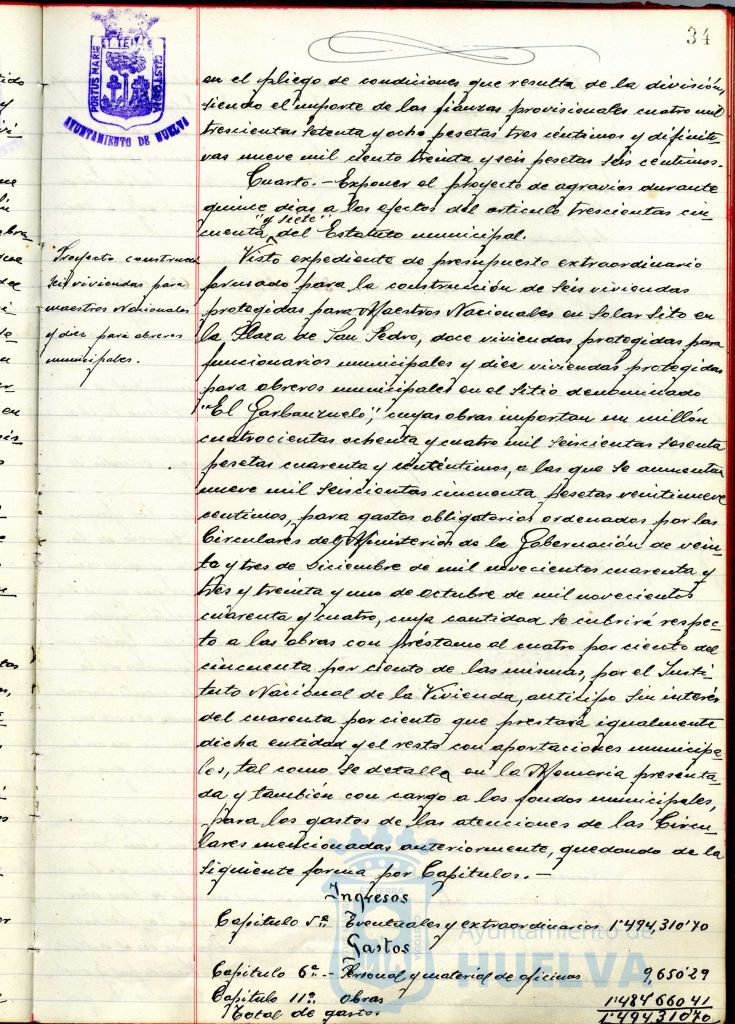 34
PORTUS MARIS ET TERRÆ CUSTODIA
AYUNTAMIENTO DE HUELVA
en el pliego de condiciones que resulta de la división,
siendo el importe de las fianzas provisionales cuatro mil
trescientas setenta y ocho pesetas tres céntimos y difiniti-
vas nueve mil ciento treinta y seis pesetas seis centimos.-
Cuarto.- Exponer el proyecto de agravios durante
quince dias a los efectos del articulo trescientas cin-
"y siete"
cuenta, del Estatuto municipal.
Proyecto construcn
seis viviendas para
maestros Nacionales
y diez para obreros
municipales.
Visto expediente de presupuesto extraordinario
formado para la construcción de seis viviendas
protegidas para Maestros Nacionales en solar sito en
la Plaza de San Pedro, doce viviendas protegidas para
funcionarios municipales y diez viviendas protegidas
para obreros municipales en el sitio denominado
"El Garbanzuelo", cuyas obras importan un millón
cuatrocientas ochenta y cuatro mil seiscientas sesenta
pesetas cuarenta y céntimos, a las que se aumentan
nueve mil seiscientas cincuenta pesetas veintinueve
centimos, para gastos obligatorios ordenados por las
Circulares del Ministerio de la Gobernación de vein-
te y tres de Diciembre de mil novecientos cuarenta y
tres y treinta y uno de octubre de mil novecientos
cuarenta y cuatro, cuya cantidad se cubrirá respec-
to a las obras con préstamo al cuatro por ciento del
cincuenta por ciento de las mismas, por el Insti-
tuto Nacional de la Vivienda, anticipo sin interés
del cuarenta por ciento que prestará igualmente
dicha entidad y el resto con aportaciones municipa-
les, tal como se detalla en la Memoria presenta-
da y también con cargo a los fondos municipales,
para los gastos de las atenciones de las Circu-
lares mencionadas anteriormente, quedando de la
siguiente forma por Capitulos.-
Ingresos
Capitulo 5º Eventuales y extraordinarios 1'494,310'70
Gastos
Capitulo 6º.- Personal y material de oficinas 9,650'29
Capitulo 11º Obras 1'484'660 41
Total de gastos 1'494,310'70
Ayuntamiento de
HUELVA